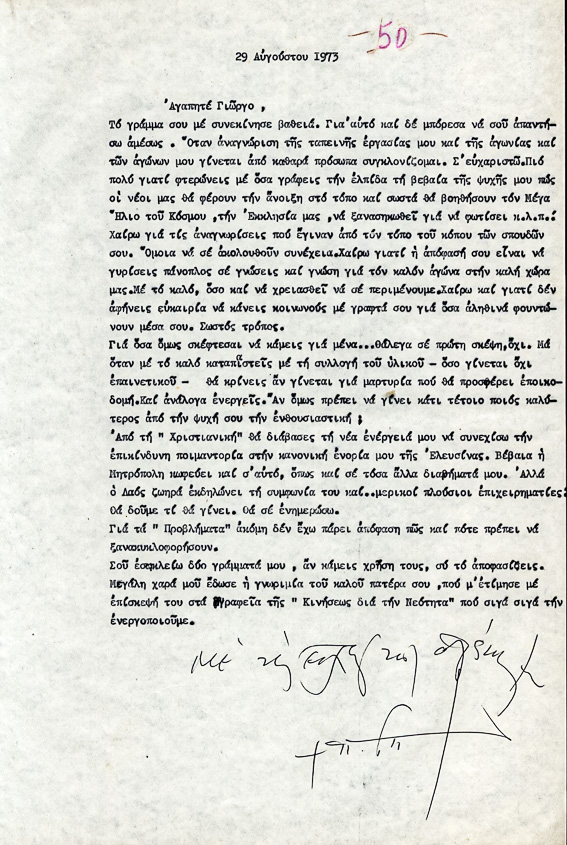 50
29 Αὐγούστου 1973
Ἀγαπητέ Γιῶργο ,
Τό γράμμα σου μέ συνεκίνησε βαθειά. Γι'αὐτό καί δέ μπόρεσα νά σοῦ ἀπαντή-
σω ἀμέσως . Ὅταν ἀναγνώριση τῆς ταπεινῆς ἐργασίας μου καί τῆς ἀγωνίας καί
τῶν ἀγώνων μου γίνεται ἀπό καθαρά πρόσωπα συγκλονίζομαι. Σ'εὐχαριστῶ.Πιό
πολύ γιατί φτερώνεις μέ ὅσα γράφεις τήν ἐλπίδα τή βεβαία τῆς ψυχῆς μου πώς
οἱ νέοι μας θά φέρουν τήν ἄνοιξη στό τόπο καί σωστά θά βοηθήσουν τόν Μέγα
Ἥλιο τοῦ Κόσμου ,τήν Ἐκκλησία μας ,νά ξανασηκωθεῖ γιά νά φωτίσει κ.λ.π.!
Χαίρω γιά τίς ἀναγνωρίσεις πού ἔγιναν ἀπό τόν τόπο τοῦ κόπου τῶν σπουδῶν
σου. Ὅμοια νά σέ ἀκολουθοῦν συνέχεια.Χαίρω γιατί ἡ ἀπόφασή σου εἶναι νά
γυρίσεις πάνοπλος σέ γνώσεις καί γνώση γιά τόν καλόν ἀγώνα στήν καλή χώρα
μας.Μέ τό καλό, ὅσο καί νά χρειασθεῖ νά σέ περιμένουμε.Χαίρω καί γιατί δέν
ἀφήνεις εὐκαιρία νά κάνεις κοινωνούς μέ γραφτά σου γιά ὅσα ἀληθινά φουντώ-
νουν μέσα σου. Σωστός τρόπος.
Γιά ὅσα ὅμως σκέφτεσαι νά κάμεις γιά μένα...θἄλεγα σέ πρώτη σκέψη,ὄχι. Μά
ὅταν μέ τό καλό καταπιστεῖς μέ τή συλλογή τοῦ ὑλικοῦ – ὅσο γίνεται ὄχι
ἐπαινετικοῦ – θά κρίνεις ἄν γίνεται γιά μαρτυρία πού θά προσφέρει ἐποικο-
δομή.Καί ἀνάλογα ἐνεργεῖς. Ἄν ὅμως πρέπει νά γίνει κάτι τέτοιο ποιός καλύ-
τερος ἀπό τήν ψυχή σου τήν ἐνθουσιαστική ;
Ἀπό τή " Χριστιανική" θά διάβασες τή νέα ἐνέργειά μου νά συνεχίσω τήν
ἐπικίνδυνη ποιμαντορία στήν κανονική ἐνορία μου τῆς Ἐλευσίνας. Βέβαια ἡ
Μητρόπολη κωφεύει καί σ'αὐτό, ὅπως καί σέ τόσα ἄλλα διαβήματά μου. Ἀλλά
ὁ Λαός ζωηρά ἐκδηλώνει τή συμφωνία του καί..μερικοί πλούσιοι ἐπιχειρηματίες!
Θά δοῦμε τί θά γίνει. Θά σέ ἐνημερώσω.
Γιά τά " Προβλήματα" ἀκόμη δέν ἔχω πάρει ἀπόφαση πῶς καί πότε πρέπει νά
ξανακυκλοφορήσουν.
Σοῦ ἐσεκλείω δύο γράμματά μου , ἄν κάμεις χρήση τους, σύ τό ἀποφασίζεις.
Μεγάλη χαρά μοῦ ἔδωσε ἡ γνωριμία τοῦ καλοῦ πατέρα σου ,πού μ'ἐτίμησε μέ
ἐπίσκεψή του στά γραφεῖα τῆς " Κινήσεως διά τήν Νεότητα" πού σιγά σιγά τήν
ἐνεργοποιοῦμε.